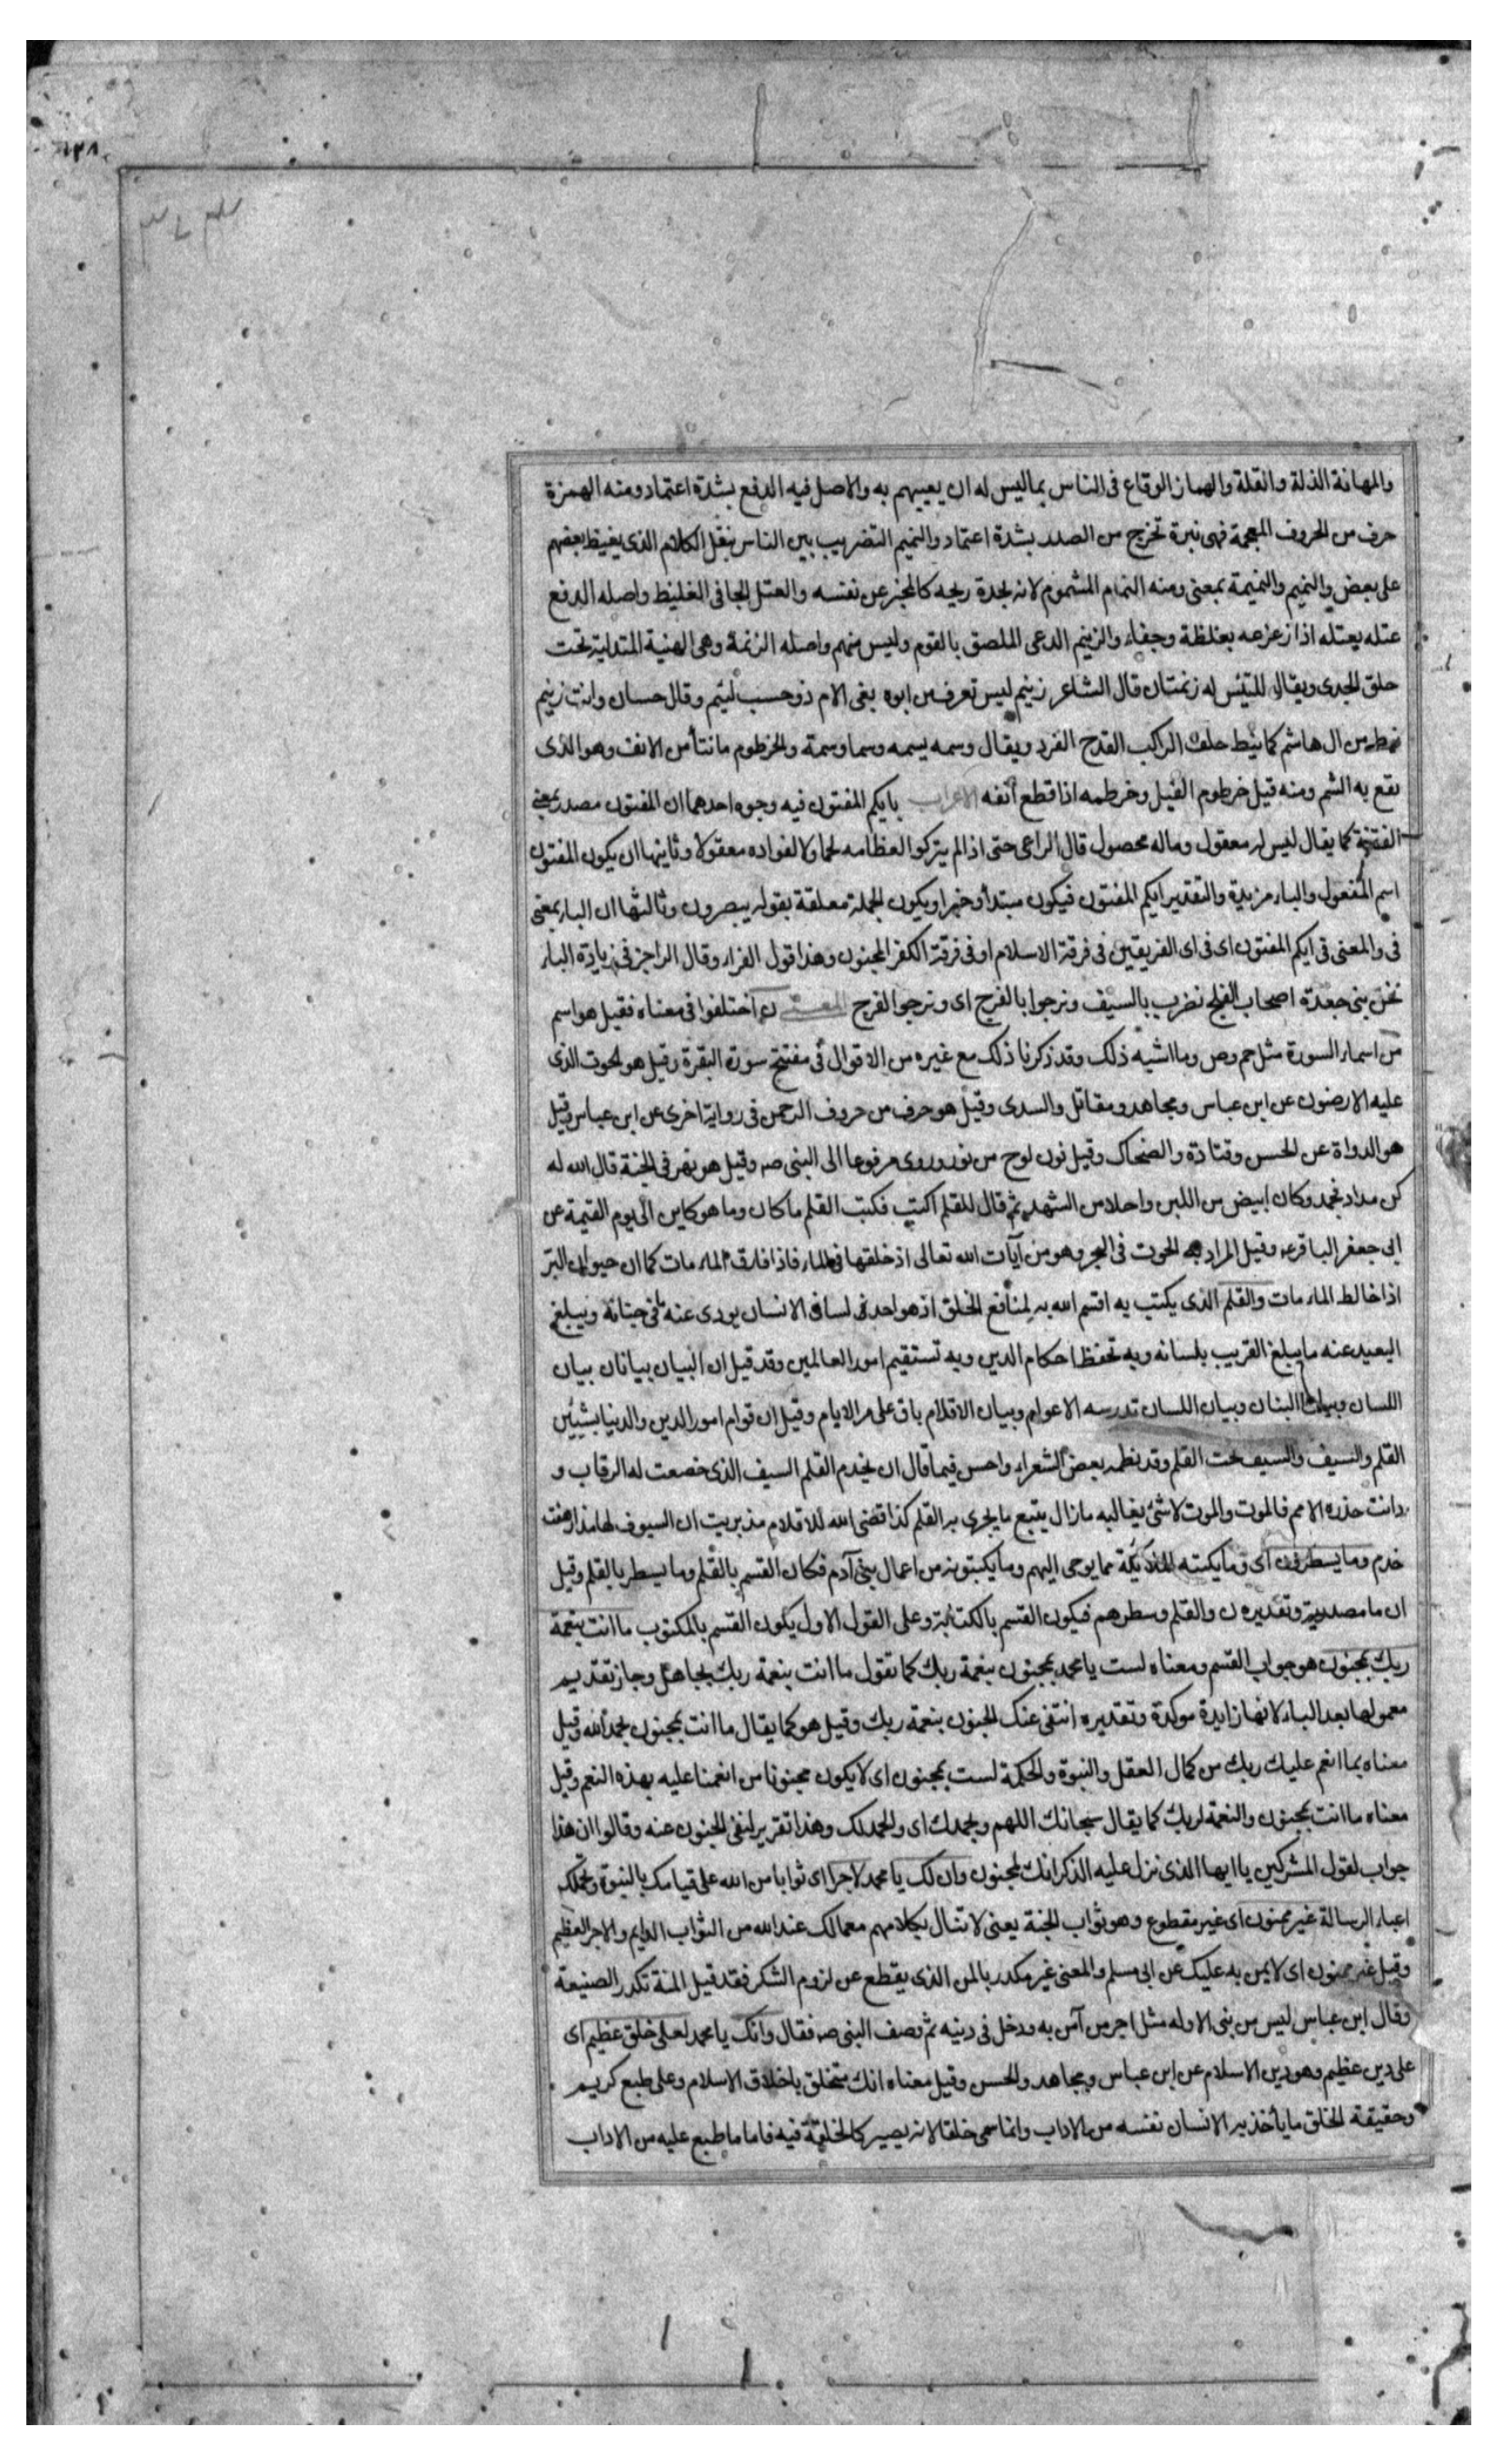 والمهانة الذلة والقلة والهماز الوقاع فى الناس بما ليس له ان يعيبهم به والاصل فيه الدفع بشدة اعتماد ومنه الهمزة
حرف من الحروف المعجمة فهى نبرة تخرج من الصدر بشدة اعتماد والنميم التضريب بين الناس بنقل الكلام الذى يغيظ بعضهم
على بعض والنميم والنميمة بمعنى ومنه النمام المشموم لانه بحدة ريحه كالمخبر عن نفسه والعتل الجافى الغليظ واصله الدفع
عتله يعتله اذا زعزعه بغلظة وجفاء والزنيم الدعى الملصق بالقوم وليس منهم واصله الزنمة وهى الهنية المتدلية تحت
حلق الجدى ويقال للتيس له زنمتان قال الشاعر زنيم ليس تعرف من ابوه بغى الام ذو حسب لئيم وقال حسان وانت زنيم
نيط من ال هاشم كما نيط خلف الراكب القدح الفرد ويقال وسمه يسمه وسما وسمة والخرطوم ما نتأ من الانف وهو الذى
يقع به الشم ومنه قيل خرطوم الفيل وخرطمه اذا قطع انفه الاعراب بايكم المفتون فيه وجوه احدهما ان المفتون مصدر بمعنى
الفتنة كما يقال ليس له معقول وماله محصول قال الراعى حتى اذا لم يتركوا لعظامه لحما ولا لفواده معقولا وثانيها ان يكون المفتون
اسم المفعول والباء مزيدة والتقدير ايكم المفتون فيكون مبتدأ وخبرا ويكون الجملة معلقة بقوله يبصرون وثالثها ان الباء بمعنى
فى والمعنى فى ايكم المفتون اى فى اى الفريقين فى فرقة الاسلام او فى فرقة الكفر المجنون وهذا قول الفراء وقال الراجز فى زيادة الباء
نحن بنى جعدة اصحاب الفلج نضرب بالسيف ونرجوا بالفرج اى ونرجوا الفرج المعنى ن اختلفوا فى معناه فقيل هو اسم
من اسماء السورة مثل حم وص وما اشبه ذلك وقد ذكرنا ذلك مع غيره من الاقوال فى مفتتح سورة البقرة وقيل هو الحوت الذى
عليه الارضون عن ابن عباس ومجاهد ومقاتل والسدى وقيل هو حرف من حروف الرحمن فى رواية اخرى عن ابن عباس وقيل
هو الدواة عن الحسن وقتادة والضحاك وقيل نون لوح من نور وروى مرفوعا الى النبى صه وقيل هو نهر فى الجنة قال الله له
كن مدادا فجمد وكان ابيض من اللبن واحلا من الشهد ثم قال للقلم اكتب فكتب القلم ما كان وما هو كاين الى يوم القيمة عن
ابى جعفر الباقر ع وقيل المراد به الحوت فى البحر وهو من آيات الله تعالى اذ خلقها فى الماء فاذا فارق الماء مات كما ان حيوان البر
اذا خالط الماء مات والقلم الذى يكتب به اقسم الله به لمنافع الخلق اذ هو احد لسانى الانسان يودى عنه ما فى جنانه ويبلغ
البعيد عنه ما يبلغ القريب بلسانه وبه تحفظ احكام الدين وبه تستقيم امور العالمين وقد قيل ان البيان بيانان بيان
اللسان وبيان البنان وبيان اللسان تدرسه الاعوام وبيان الاقلام باق على مر الايام وقيل ان قوام امور الدين والدنيا بشيئين
القلم والسيف والسيف تحت القلم وقد نظمه بعض الشعراء واحسن فيما قال ان يخدم القلم السيف الذى خضعت له الرقاب و
دانت حذره الامم فالموت والموت لا شئ يغالبه مازال يتبع ما يجرى به القلم كذا قضى الله للاقلام مذ بريت ان السيوف لها مذ ارهفت
خدم وما يسطرون اى وما يكتبه الملائكة مما يوحى اليهم وما يكتبونه من اعمال بنى آدم فكان القسم بالقلم وما يسطر بالقلم وقيل
ان ما مصدرية وتقديره ن والقلم وسطرهم فيكون القسم بالكتابة وعلى القول الاول يكون القسم بالمكتوب ما انت بنعمة
ربك بمجنون هو جواب القسم ومعناه لست يا محمد بمجنون بنعمة ربك كما تقول ما انت بنعمة ربك بجاهل وجاز تقديم
معمولها بعد الباء لانها زايدة موكدة وتقديره انتفى عنك الجنون بنعمة ربك وقيل هو كما يقال ما انت بمجنون بحمد الله وقيل
معناه بما انعم عليك ربك من كمال العقل والنبوة والحكمة لست بمجنون اى لا يكون مجنونا من انعمنا عليه بهذه النعم وقيل
معناه ما انت بمجنون والنعمة لربك كما يقال سبحانك اللهم وبحمدك اى والحمد لك وهذا تقرير لنفى الجنون عنه وقالوا ان هذا
جواب لقول المشركين يا ايها الذى نزل عليه الذكر انك لمجنون وان لك يا محمد لاجرا اى ثوابا من الله على قيامك بالنبوة وتحملك
اعباء الرسالة غير ممنون اى غير مقطوع وهو ثواب الجنة يعنى لا تبال بكلامهم مع مالك عند الله من الثواب الدايم والاجر العظيم
وقيل غير ممنون اى لا يمن به عليك عن ابى مسلم والمعنى غير مكدر بالمن الذى يقطع عن لزوم الشكر فقد قيل المنة تكدر الصنيعة
وقال ابن عباس ليس من نبى الا وله مثل اجر من آمن به ودخل فى دينه ثم وصف النبى صه فقال وانك يا محمد لعلى خلق عظيم اى
على دين عظيم وهو دين الاسلام عن ابن عباس ومجاهد والحسن وقيل معناه انك متخلق باخلاق الاسلام وعلى طبع كريم
وحقيقة الخلق ما يأخذ به الانسان نفسه من الاداب وانما سمى خلقا لانه يصير كالخلقة فيه فاما ما طبع عليه من الاداب